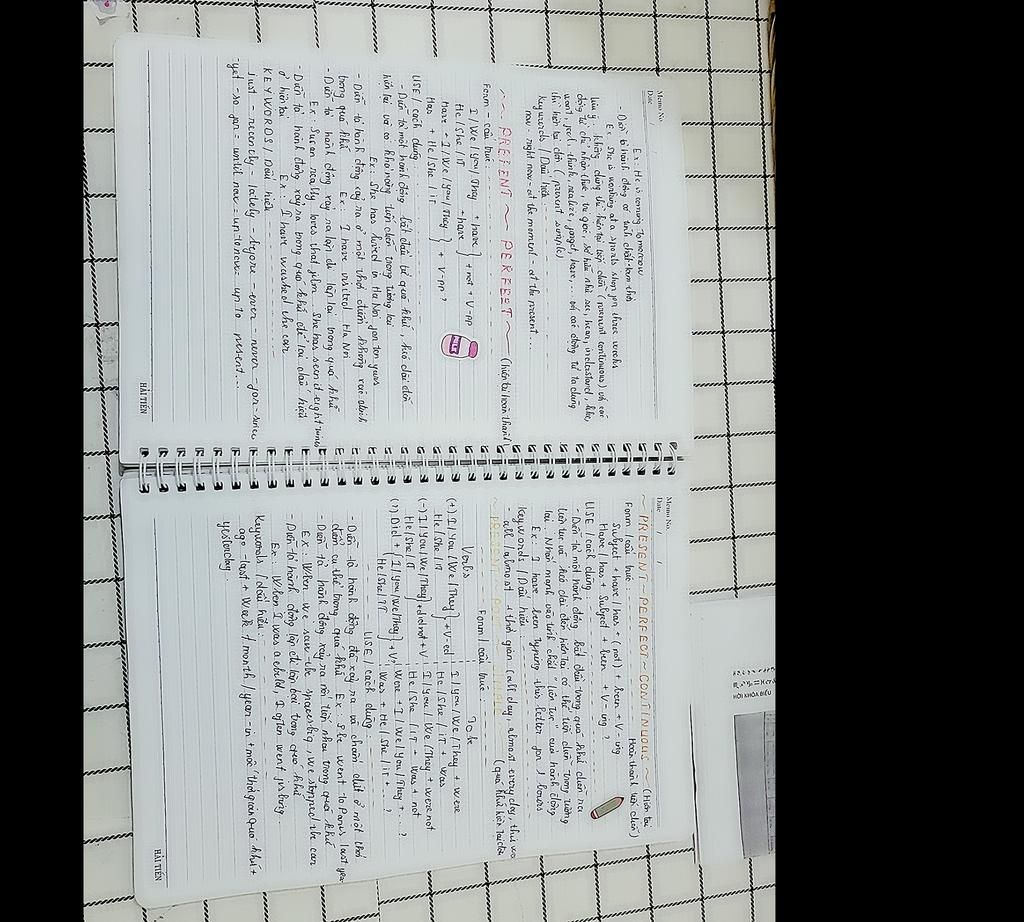 Memo No.
Date / /
Ex: He is coming tomorrow
- Diễn tả hành động có tính chất tạm thời
Ex: She is working at a sports shop for three weeks
Lưu ý: không dùng thì hiện tại tiếp diễn (present continuous) với các
động từ chỉ nhận thức, tri giác, sở hữu như see, hear, understand, like,
want, feel, think, realize, forget, have,... với các động từ ta dùng
thì hiện tại đơn (present simple)
Keywords / Dấu hiệu
now - right now - at the moment - at the present....
~~ PREFENT ~ PERFEET ~ (hiện tại hoàn thành)
Form - cấu trúc:
I / We / you / They + have
He / She / IT + have } + not + V-pp
Have + I / We / you / They
Has + He / she / iT } + V-pp ?
MILK
USE / cách dùng
- Diễn tả một hành động bắt đầu từ quá khứ, kéo dài đến
hiện tại và có khả năng tiếp diễn trong tương lai
Ex: She has lived in Ha Noi for ten years
- Diễn tả hành động xảy ra ở một thời điểm không xác định
trong quá khứ Ex: I have visited Ha Noi
- Diễn tả hành động xảy ra lặp đi lặp lại trong quá khứ
Ex: Susan really loves that film. She has seen it eight times
- Diễn tả hành động xảy ra trong quá khứ để lại dấu hiệu
ở hiện tại Ex: I have washed the car
KEYWORDS / Dấu hiệu
Just - recently - lately - before - ever - never - for - since
yet - so far = until now = up to now = up to present...
HẢI TIẾN
Memo No.
Date / /
~ PRESENT PERFECT ~ CONTINUOUS ~ (Hiện tại
Hoàn thành tiếp diễn)
Form / cấu trúc
Subject + have / has + (not) + been + V-ing
Have / has + Subject + been + V-ing ?
USE / cách dùng
- Diễn tả một hành động bắt đầu trong quá khứ diễn ra
liên tục và kéo dài đến hiện tại có thể tiếp diễn trong tương
lai. Nhấn mạnh vào tính chất "liên tục" của hành động
Ex: I have been typing this letter for 3 hours
Keywords / Dấu hiệu:
- all / almost + thời gian (all day, almost every day, this
(quá khứ
Form / cấu trúc:
Verbs
(+) I / You / We / They
He / She / iT } + V-ed
(-) I / You / We / They
He / She / iT } + did not + V
(?) Did + { I / You / We / They
He / She / iT } + V?
To be
I / you / We / They + were
He / She / iT + was
I / You / We / They + were not
He / She / iT + was + not
Were + I / We / you / They +... ?
Was + He / She / iT +... ?
USE / cách dùng
- Diễn tả hành động đã xảy ra và chấm dứt ở một thời
điểm cụ thể trong quá khứ Ex: She went to Paris last year
- Diễn tả hành động xảy ra nối tiếp nhau trong quá khứ
EX: When we saw the spaceship, we stopped the car
- Diễn tả hành động lặp đi lặp lại trong quá khứ
Ex: When I was a child, I often went fishing
Keywords / dấu hiệu:
ago - last + week / month / year - in + mốc thời gian quá khứ +
yesterday
HẢI TIẾN